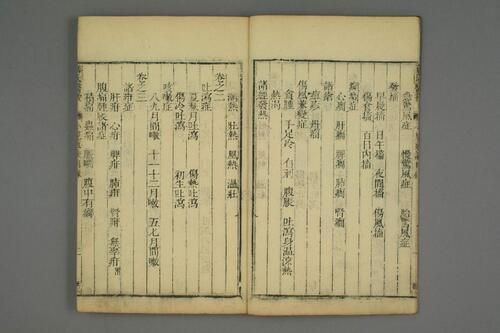 急驚風症 慢驚風症 胎驚風症
發搐
早晨搐 日午搐 夜間搐 傷風搐
傷食搐 百日内搐
諸癇
心癇 肝癇 脾癇 肺癇 腎癇
瘡疹 丹瘤
傷風兼變症
貪睡 手足冷 自利 腹脹 吐瀉身温凉熱
熱渴
諸經發熱
潮熱 壯熱 風熱 温壯
卷之二
吐瀉症
夏秋月吐瀉 傷熱吐瀉
傷冷吐瀉 初生吐瀉
咳嗽症
八九月間嗽 十一十二月嗽 五七月間嗽
卷之三
諸疳症
肝疳 心疳 脾疳 肺疳 腎疳 無辜疳
腹痛腫脹諸症
積痛 蟲痛 腹中有癖